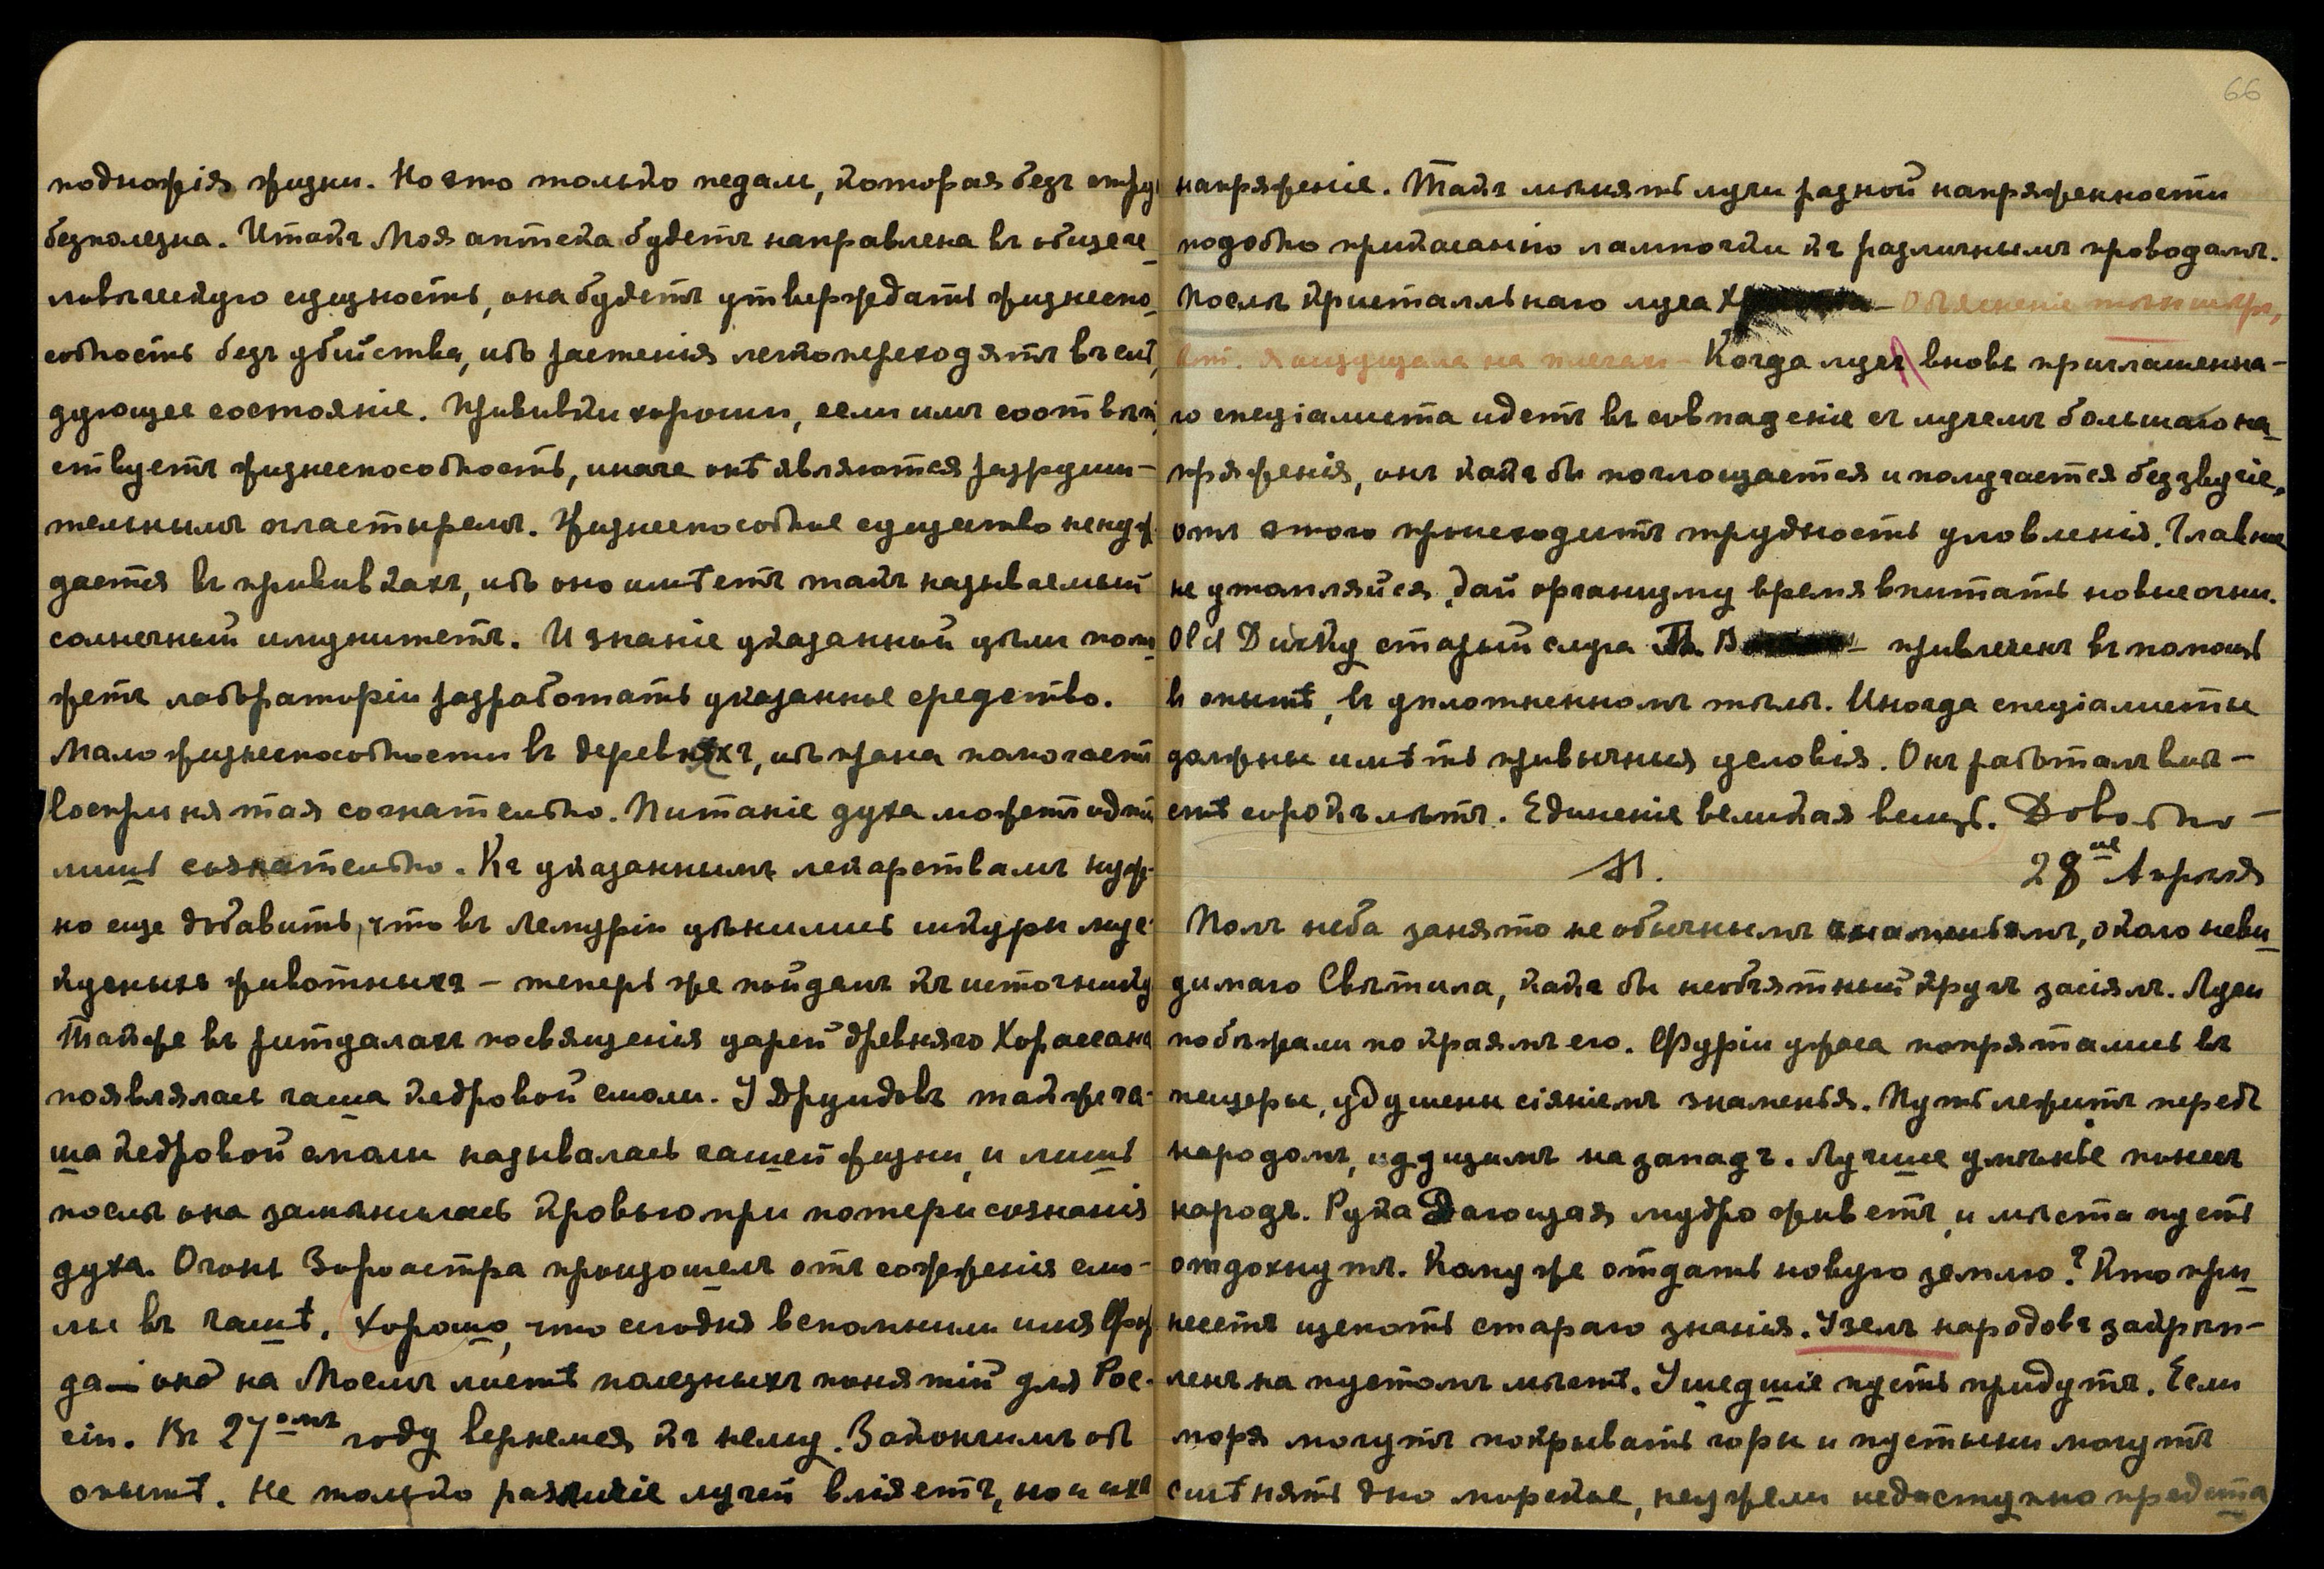 подножія жизни. Но это только педаль, которая безъ струн
безполезна. Итакъ Моя аптека будетъ направлена въ общече-
ловѣческую сущность, она будетъ утверждать жизнеспо-
собность безъ убійства, ибо растенія легко переходятъ въ слѣ-
дующее состояніе. Прививки хороши, если имъ соотвѣт-
ствуетъ жизнеспособность, иначе онѣ являются разруши-
тельнымъ пластыремъ. Жизнеспособное существо не нуж-
дается въ прививкахъ, ибо оно имѣетъ такъ называемый
солнечный имунитетъ. И знаніе указанной цѣли помо-
жетъ лабораторіи разработать указанное средство.
Мало жизнеспособности въ деревняхъ, ибо прана помогаетъ
воспринятая сознательно. Питаніе духа можетъ идти
лишь сознательно. Къ указаннымъ лекарствамъ нуж-
но еще добавить, что въ Лемуріи цѣнились шкуры мус-
кусныхъ животныхъ – теперь же пойдемъ къ источнику
Также въ ритуалахъ посвященія царей древняго Хорассана
появлялась чаша кедровой смолы. У Друидовъ также ча-
ша кедровой смолы называлась чашей жизни, и лишь
послѣ она замѣнилась кровью при потери сознанія
духа. Огонь Зороастра произошелъ отъ сожженія смо-
лы въ чашѣ. Хорошо, что сегодня вспомнили имя Фор
да – оно на Моемъ листѣ полезныхъ понятій для Рос-
сіи. Въ 27омъ году вернемся къ нему. Закончимъ объ
опытѣ. Не только различіе лучей вліяетъ, но и ихъ
66
напряженіе. Такъ мѣнять лучи разной напряженности
подобно прикасанію лампочки къ различнымъ проводамъ.
Послѣ кристалльнаго луча – Объясненіе
я ощущала на плечахъ – Когда лучъ вновь приглашенна-
го спеціалиста идетъ въ совпаденіе съ лучемъ большаго на-
пряженія, онъ какъ бы поглощается и получается беззвучіе,
отъ этого происходитъ трудность уловленія. Главное
не утомляйся, дай организму время впитать новые огни.
Old Ducky старый слуга В – привлеченъ въ помощь
въ опытѣ, въ уплотненномъ тѣлѣ. Иногда спеціалисты
должны имѣть привычныя условія. Онъ работалъ вмѣ-
стѣ сорокъ лѣтъ. Единеніе великая вещь. Довольно –
М. 28ое Апрѣля
Полъ неба занято необычнымъ знаменьемъ, около неви-
димаго Свѣтила, какъ бы необъятный кругъ засіялъ. Лучи
побѣжали по краямъ его. Фуріи ужаса попрятались въ
пещеры, удушены сіяніемъ знаменья. Путь лежитъ передъ
народомъ, идущимъ на западъ. Лучшее умѣнье понесъ
народъ. Рука Дающая мудро живетъ, и мѣста пусть
отдохнутъ. Кому же отдать новую землю? Кто при-
несетъ щепоть стараго знанія. Узелъ народовъ закрѣп-
ленъ на пустомъ мѣстѣ. Ушедшіе пусть придутъ. Если
моря могутъ покрывать горы и пустыни могутъ
смѣнять дно морское, неужели недоступно предста